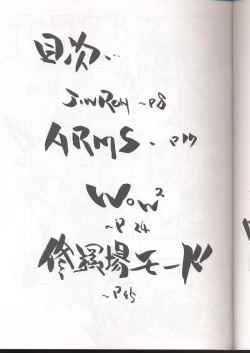 目次...
JIN-ROH ~P8
ARMS. P17
WOW²
~P 24
修羅場モード
~P45